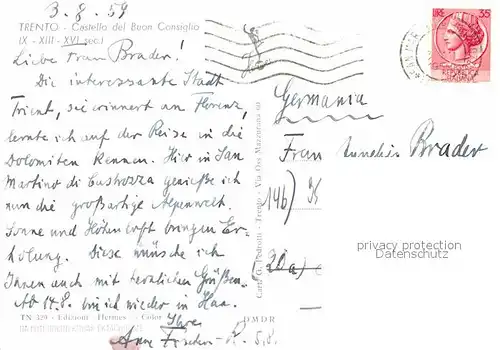 3.8.59
TRENTO - Castello del Buon Consiglio
(X - XIII - XVI sec.)
Liebe Frau Brader!
Die interessante Stadt
Trient, sie erinnert an Florenz,
lernte ich auf der Reise in die
Dolomiten kennen. Hier in San
Martino di Castrozza genieße ich
nun die großartige Alpenwelt.
Sonne und Höhenluft bringen Er-
holung. Diese wünsche ich
Ihnen auch mit herzlichen Grüßen.
Ab 14.8. bin ich wieder in Haa.
TN 329 - Edizioni Hermes - Color
Ihre
Anne Fischer-R. 5.8.
DMOR
Carlo G. Pedrotti - Trento - Via Oss Mazzurana 60
LIRE 35
Germania
Frau Annelies Brader
14b)
20a)
privacy protection
Datenschutz